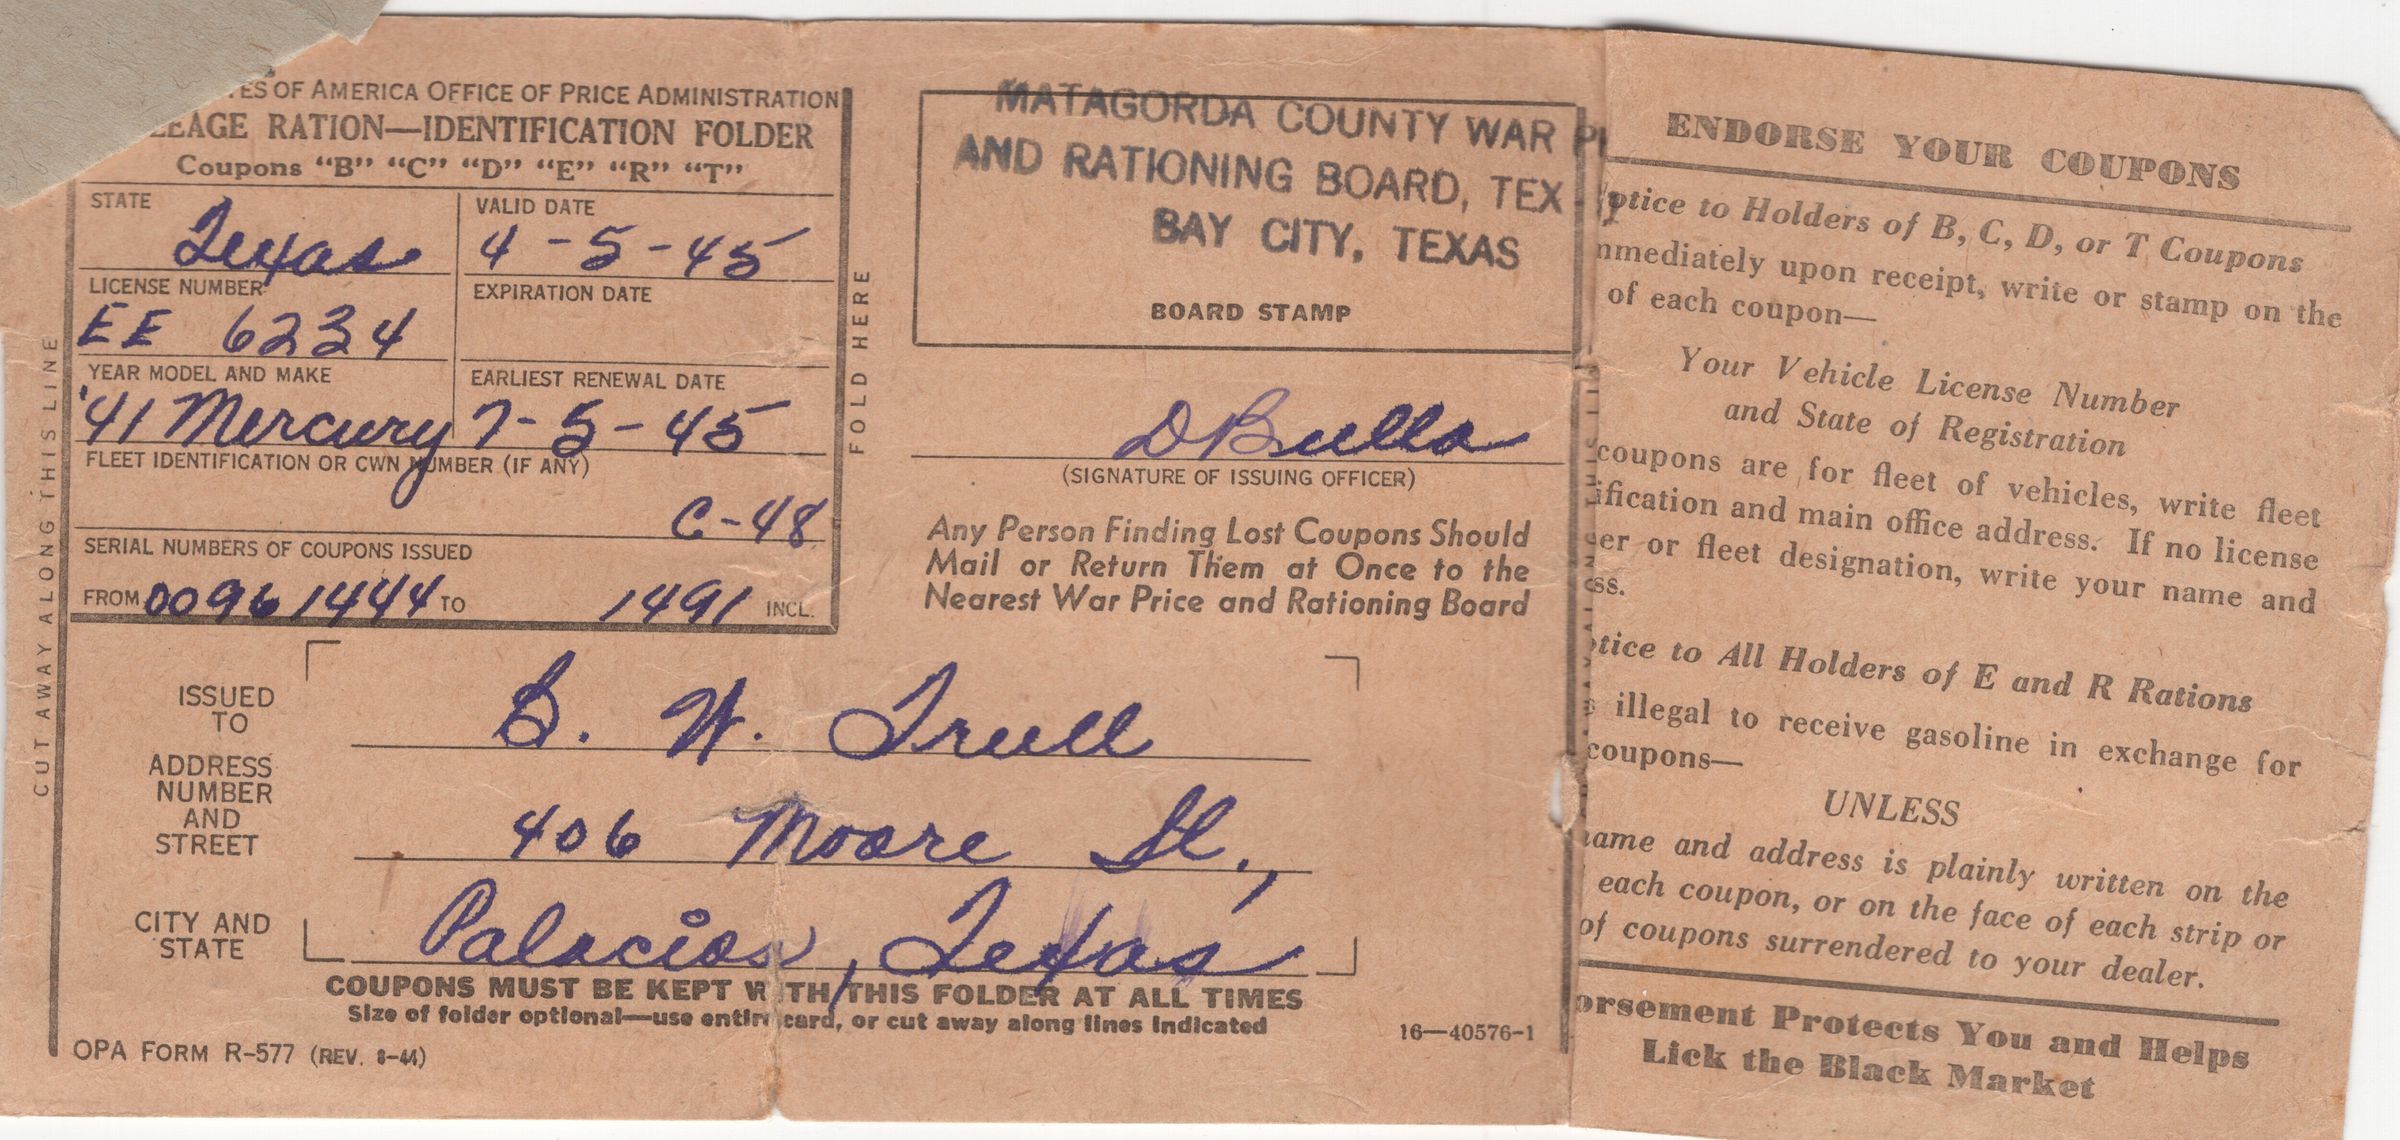 TES OF AMERICA OFFICE OF PRICE ADMINISTRATION
EAGE RATION—IDENTIFICATION FOLDER
Coupons “B” “C” “D” “E” “R” “T”
STATE
Texas
VALID DATE
4-5-45
LICENSE NUMBER
EE 6234
EXPIRATION DATE
YEAR MODEL AND MAKE
'41 Mercury
EARLIEST RENEWAL DATE
7-5-45
FLEET IDENTIFICATION OR CWN NUMBER (IF ANY)
C-48
SERIAL NUMBERS OF COUPONS ISSUED
FROM 00961444 TO 1491 INCL.
CUT AWAY ALONG THIS LINE
FOLD HERE
MATAGORDA COUNTY WAR P
AND RATIONING BOARD, TEX
BAY CITY, TEXAS
BOARD STAMP
(SIGNATURE OF ISSUING OFFICER)
Any Person Finding Lost Coupons Should
Mail or Return Them at Once to the
Nearest War Price and Rationing Board
ISSUED
TO
B. W. Trull
ADDRESS
NUMBER
AND
STREET
406 Moore St.,
CITY AND
STATE
Palacios, Texas
COUPONS MUST BE KEPT WITH THIS FOLDER AT ALL TIMES
Size of folder optional—use entire card, or cut away along lines indicated
OPA FORM R-577 (REV. 8-44)
16—40576-1
ENDORSE YOUR COUPONS
otice to Holders of B, C, D, or T Coupons
mmediately upon receipt, write or stamp on the
of each coupon—
Your Vehicle License Number
and State of Registration
coupons are for fleet of vehicles, write fleet
ification and main office address. If no license
er or fleet designation, write your name and
ss.
tice to All Holders of E and R Rations
illegal to receive gasoline in exchange for
coupons—
UNLESS
name and address is plainly written on the
each coupon, or on the face of each strip or
of coupons surrendered to your dealer.
orsement Protects You and Helps
Lick the Black Market